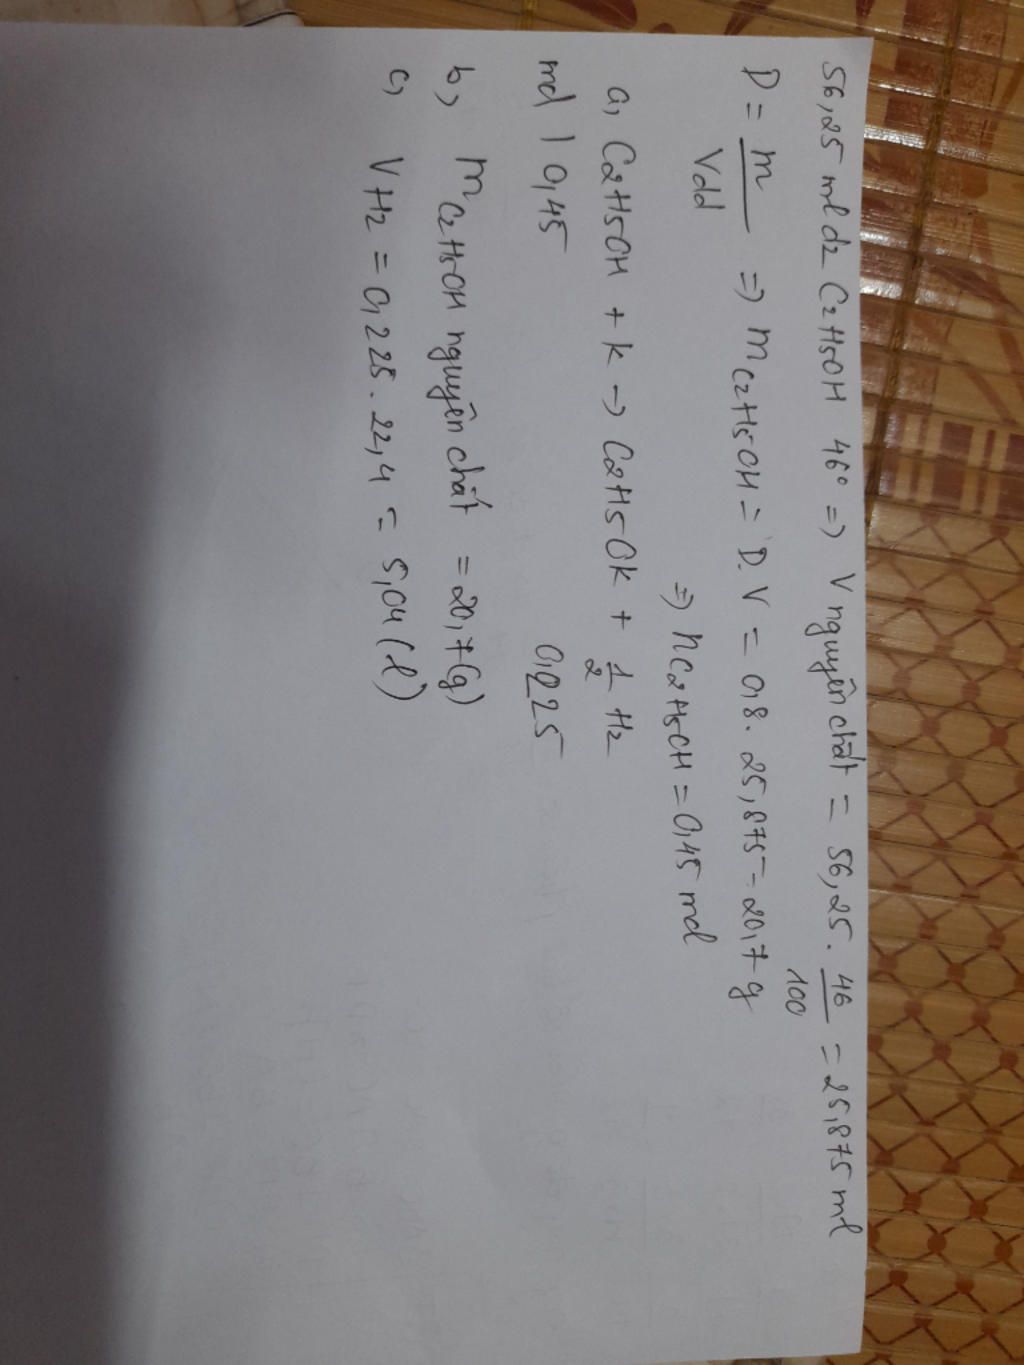 56,25 ml d2 C2H5OH 46° => V nguyên chất = 56,25 . 46/100 = 25,875 ml
D = m/Vdd => m C2H5OH = D.V = 0,8 . 25,875 = 20,7 g
=> n C2H5OH = 0,45 mol
a, C2H5OH + K -> C2H5OK + 1/2 H2
mol | 0,45 0,225
b, m C2H5OH nguyên chất = 20,7 (g)
c, V H2 = 0,225 . 22,4 = 5,04 (l)